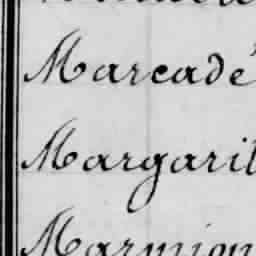 Marcadé
Margarit
Marmion